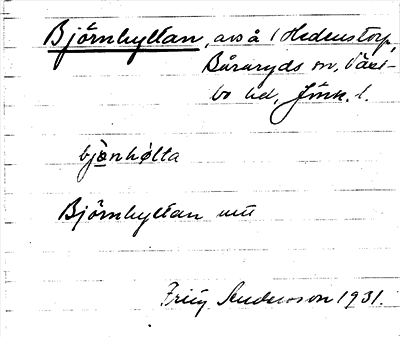 Björnhyltan, avs å 1 Hedenstorp,
Båraryds sn, Väst-
bo hd, Jönk. l.
bjœnhølta
Björnhyltan utt
Sandersson 1931.